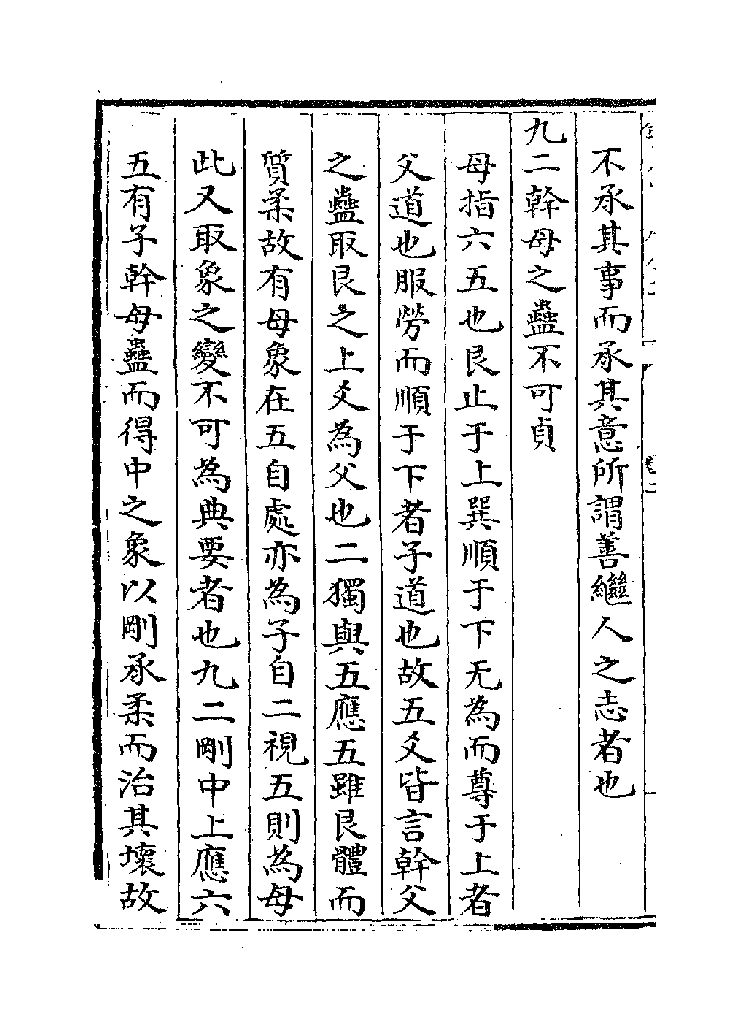 不承其事而承其意所謂善繼人之志者也
九二幹母之蠱不可貞
母指六五也艮止于上巽順于下无為而尊于上者
父道也服勞而順于下者子道也故五爻皆言幹父
之蠱取艮之上爻為父也二獨與五應五雖艮體而
質柔故有母象在五自處亦為子自二視五則為母
此又取象之變不可為典要者也九二剛中上應六
五有子幹母蠱而得中之象以剛承柔而治其壞故